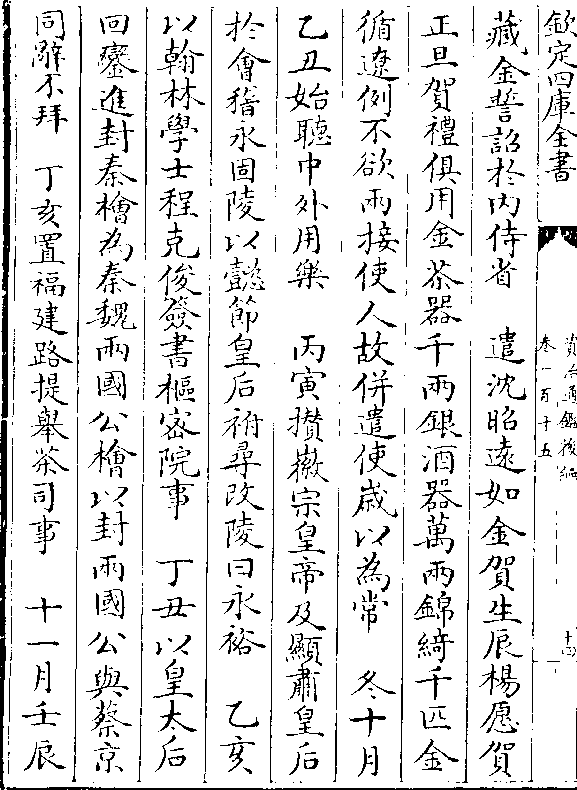 欽定四庫全書
資治通鑑後編
卷一百十五
十四
藏金誓詔於内侍省　遣沈昭遠如金賀生辰楊愿賀
正旦賀禮俱用金茶器千兩銀酒器萬兩錦綺千匹金
循遼例不欲兩接使人故併遣使歲以為常　冬十月
乙丑始聽中外用樂　丙寅攢徽宗皇帝及顯肅皇后
於會稽永固陵以懿節皇后祔尋改陵曰永裕　乙亥
以翰林學士程克俊簽書樞密院事　丁丑以皇太后
回鑾進封秦檜為秦魏兩國公檜以封兩國公與蔡京
同辭不拜　丁亥置福建路提舉茶司事　十一月壬辰